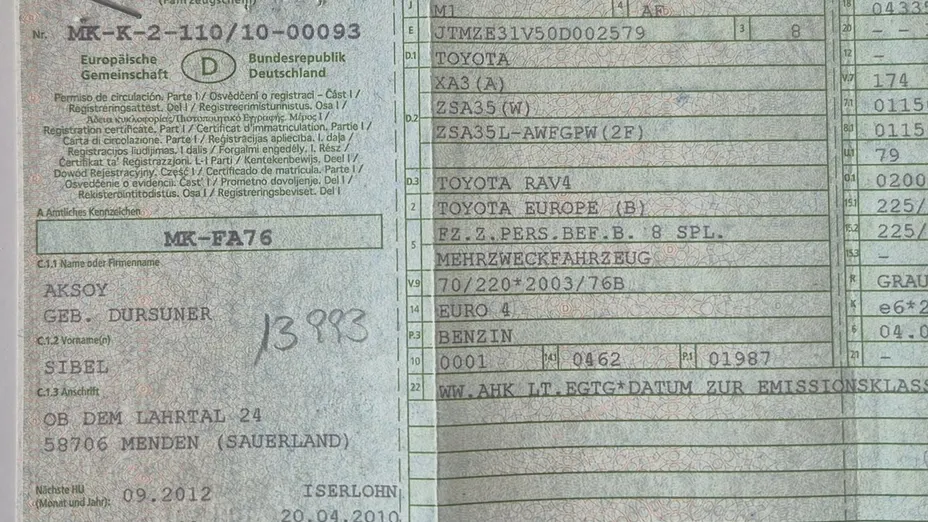 (Fahrzeugschein)
Nr. MK-K-2-110/10-00093
Europäische Gemeinschaft
D
Bundesrepublik Deutschland
Permiso de circulación. Parte I / Osvědčení o registraci - Část I /
Registreringsattest. Del I / Registreerimistunnistus. Osa I /
Άδεια κυκλοφορίας/Πιστοποιητικό Εγγραφής. Μέρος I /
Registration certificate. Part I / Certificat d'immatriculation. Partie I /
Carta di circolazione. Parte I / Reģistrācijas apliecība. I. daļa /
Registracijos liudijimas. I dalis / Forgalmi engedély. I. Rész /
Ċertifikat ta' Reġistrazzjoni. L-I Parti / Kentekenbewijs. Deel I /
Dowód Rejestracyjny. Część I / Certificado de matrícula. Parte I /
Osvedčenie o evidencii. Časť I / Prometno dovoljenje. Del I /
Rekisteröintitodistus. Osa I / Registreringsbeviset. Del I
A Amtliches Kennzeichen
MK-FA76
C.1.1 Name oder Firmenname
AKSOY
GEB. DURSUNER
13993
C.1.2 Vorname(n)
SIBEL
C.1.3 Anschrift
OB DEM LAHRTAL 24
58706 MENDEN (SAUERLAND)
Nächste HU
(Monat und Jahr): 09.2012
ISERLOHN
20.04.2010
J M1 4 AF
E JTMZE31V50D002579 3 8
D.1 TOYOTA
D.2 XA3(A)
ZSA35(W)
ZSA35L-AWFGPW(2F)
D.3 TOYOTA RAV4
2 TOYOTA EUROPE (B)
5 FZ.Z.PERS.BEF.B. 8 SPL.
MEHRZWECKFAHRZEUG
V.9 70/220*2003/76B
14 EURO 4
P.3 BENZIN
10 0001 14.1 0462 P.1 01987
22 WW.AHK LT.EGTG*DATUM ZUR EMISSIONSKLASS
18 0433
20 - -
12 -
V.7 174
7.1 0115
8.1 0115
U.1 79
O.1 0200
15.1 225/
15.2 225/
15.3 -
R GRAU
K e6*2
6 04.0
21 -